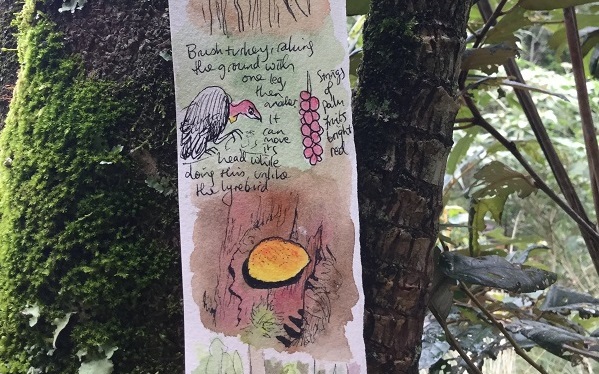 Brush turkey, raking
the ground with
one leg,
then
another
It
can
move
its
head while
doing this, unlike
the lyrebird
Strings
of
palm
fruits
bright
red